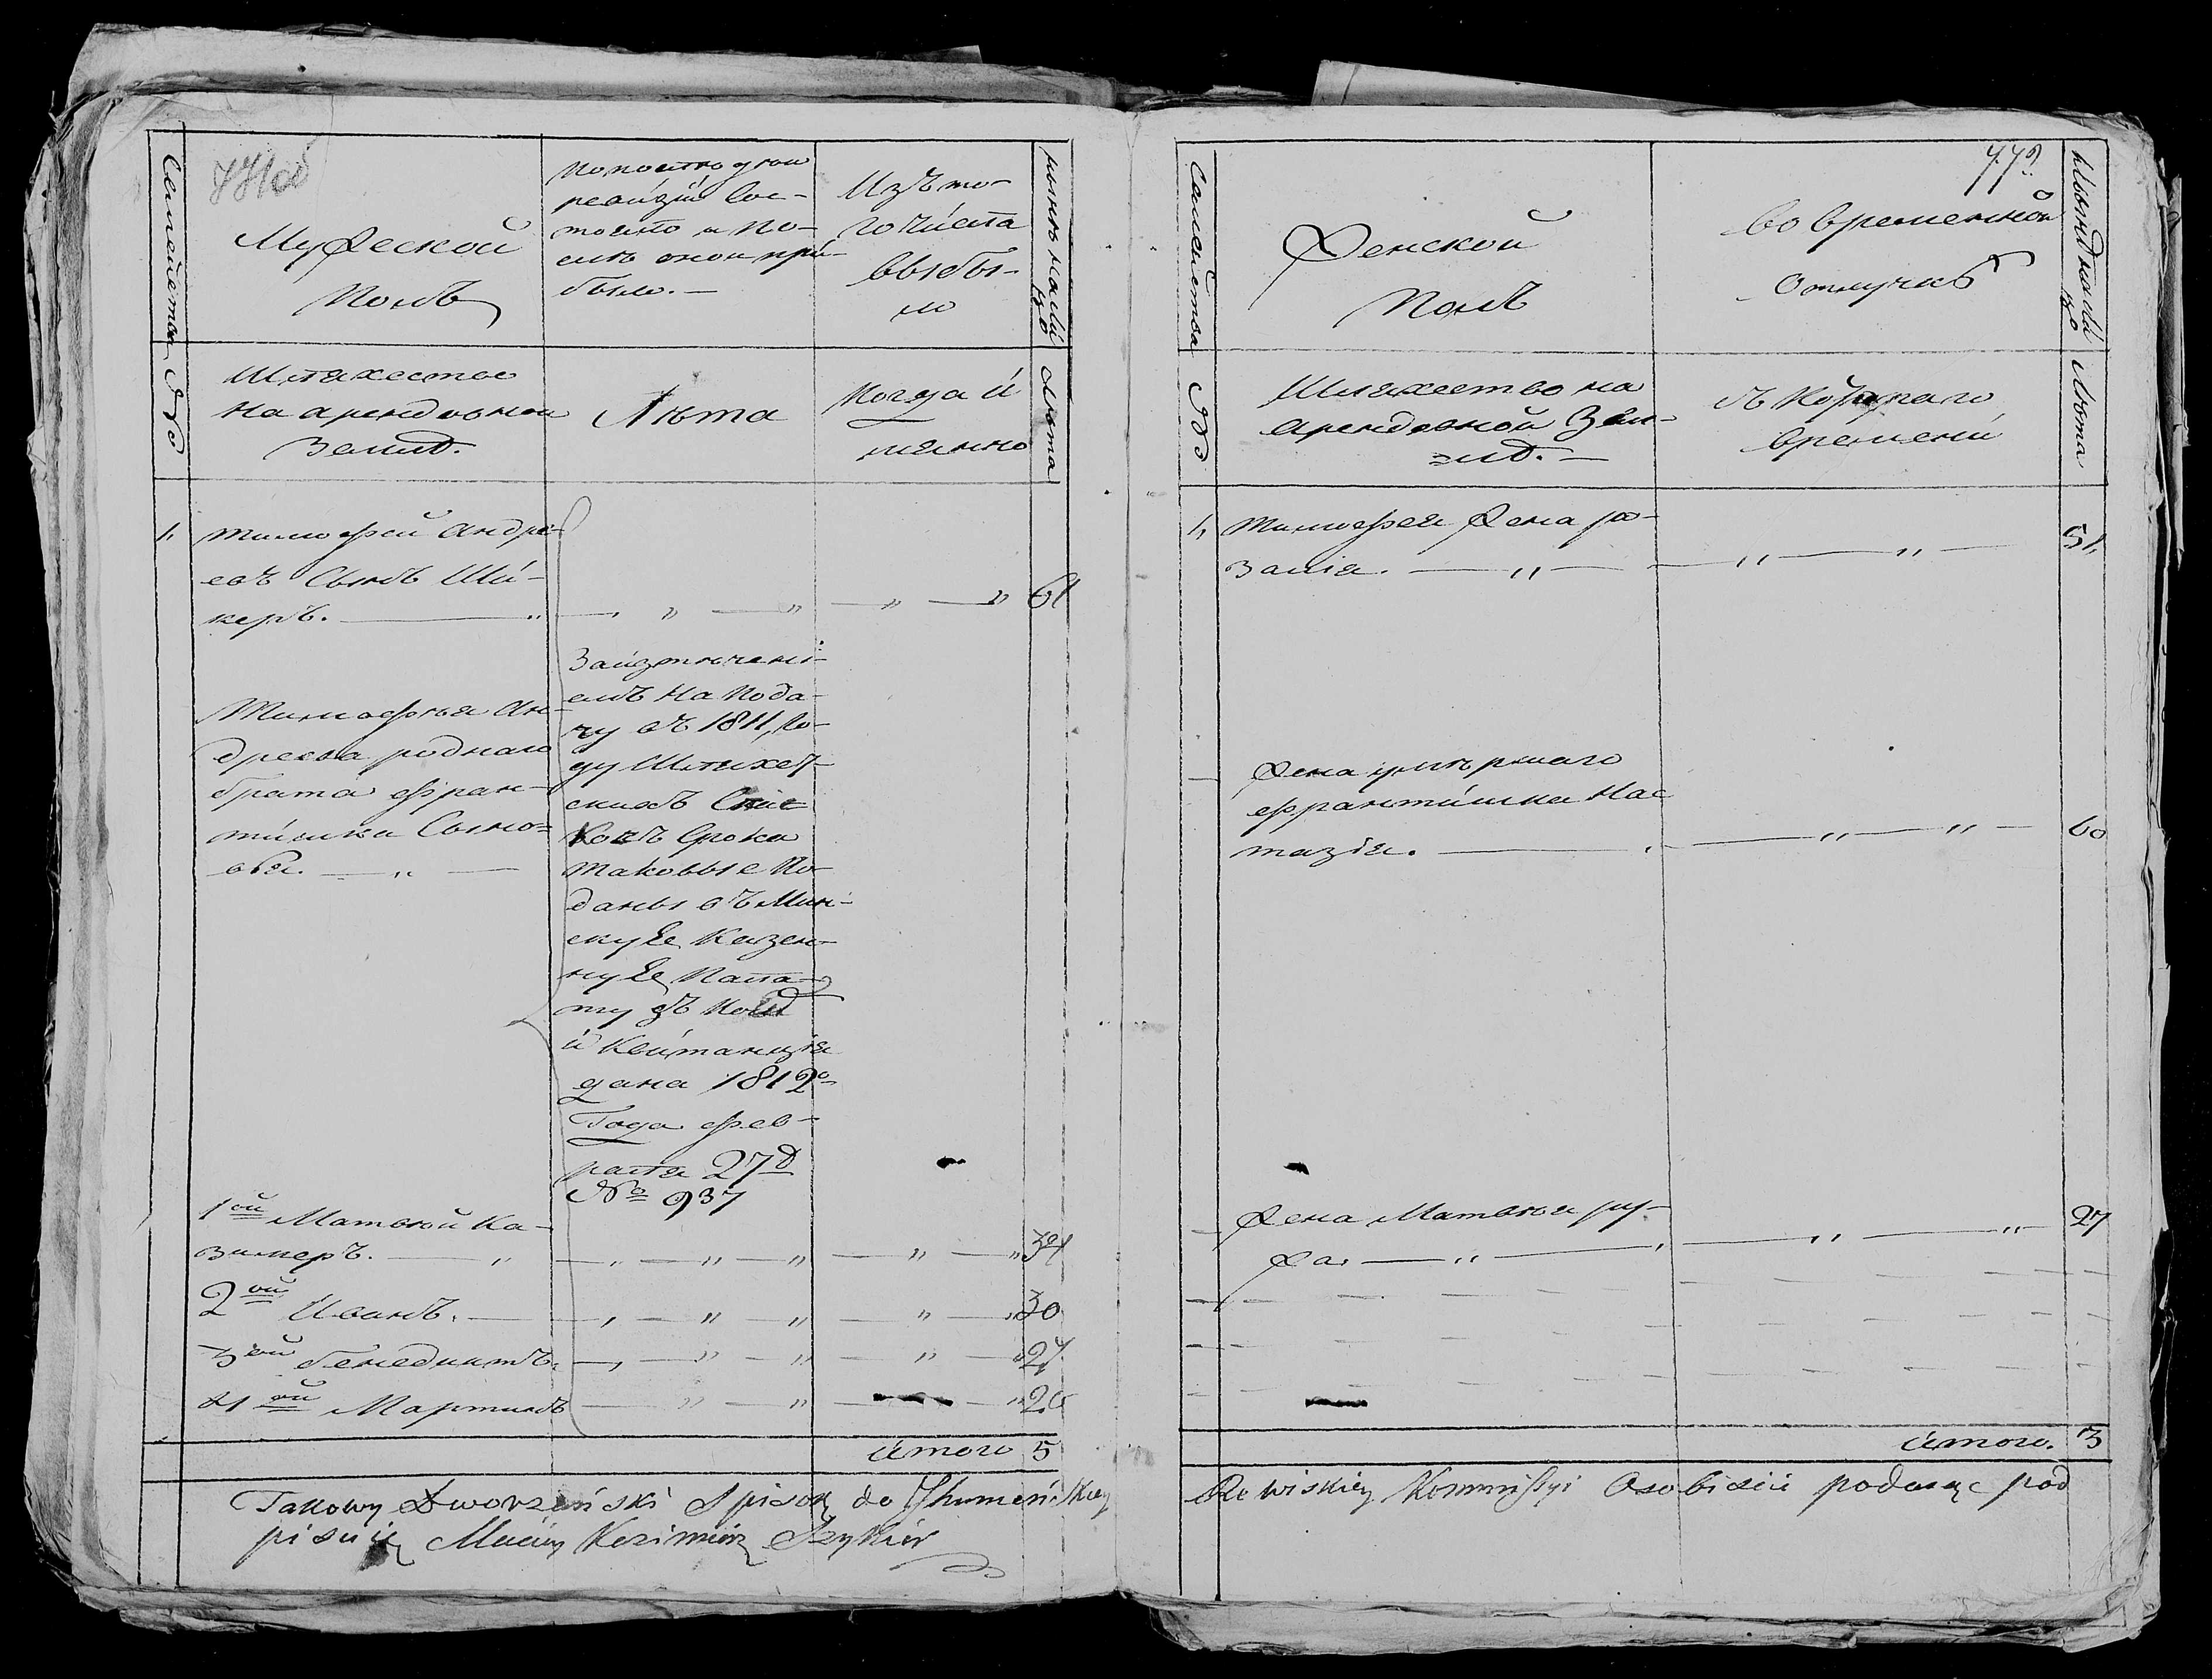 Семейства
Мужеской
Полъ
По последней
ревизіи сос-
тояло и по-
слѣ оной при-
было. —
Изъ то-
го числа
выбы-
ло
нынѣ на лицо
№
Шляхество
на арендовной
Землѣ.
Лѣта
Когда и
имянно
Лѣта
1, Тимофей Андре-
евъ Сынъ Ши-
керъ. — 61
Тимофея Ан-
дреева роднаго
брата Фран-
тишка Сыно-
вья. —
За изтечені-
емъ на пода-
чу въ 1811, го-
ду Шляхет-
скихъ Спис
ковъ Срока
таковые По-
даны въ Мин-
скую Казен-
ную Пала-
ту
и Квитанція
дана 1812º
Года Фев-
раля 27
№ 937
1ой Матвѣй Ка-
зимеръ. — 34
2ой Иванъ. — 30
3ой бенедиктъ. — 27
4ой Мартинъ — 20
итого 5
Takowy Dworzański Spisok do Ihumeńskiey
pisuię Maciey Kazimierz Szykier
779
Семейства
Женской
Полъ
Во временной
отлучкѣ
нынѣ на лицо
№
Шляхество на
арендовной Зем-
лѣ. —
съ Котораго
времени
Лѣта
1, Тимофея Жена ро-
залія. — 51,
— Жена умѣршаго
Франтишка Нас
тазія. — 60
— Жена Матвѣя ру-
жа, — 27
итого. 3
Rewiskiey Kommissyi Osobiscie podaiąc pod